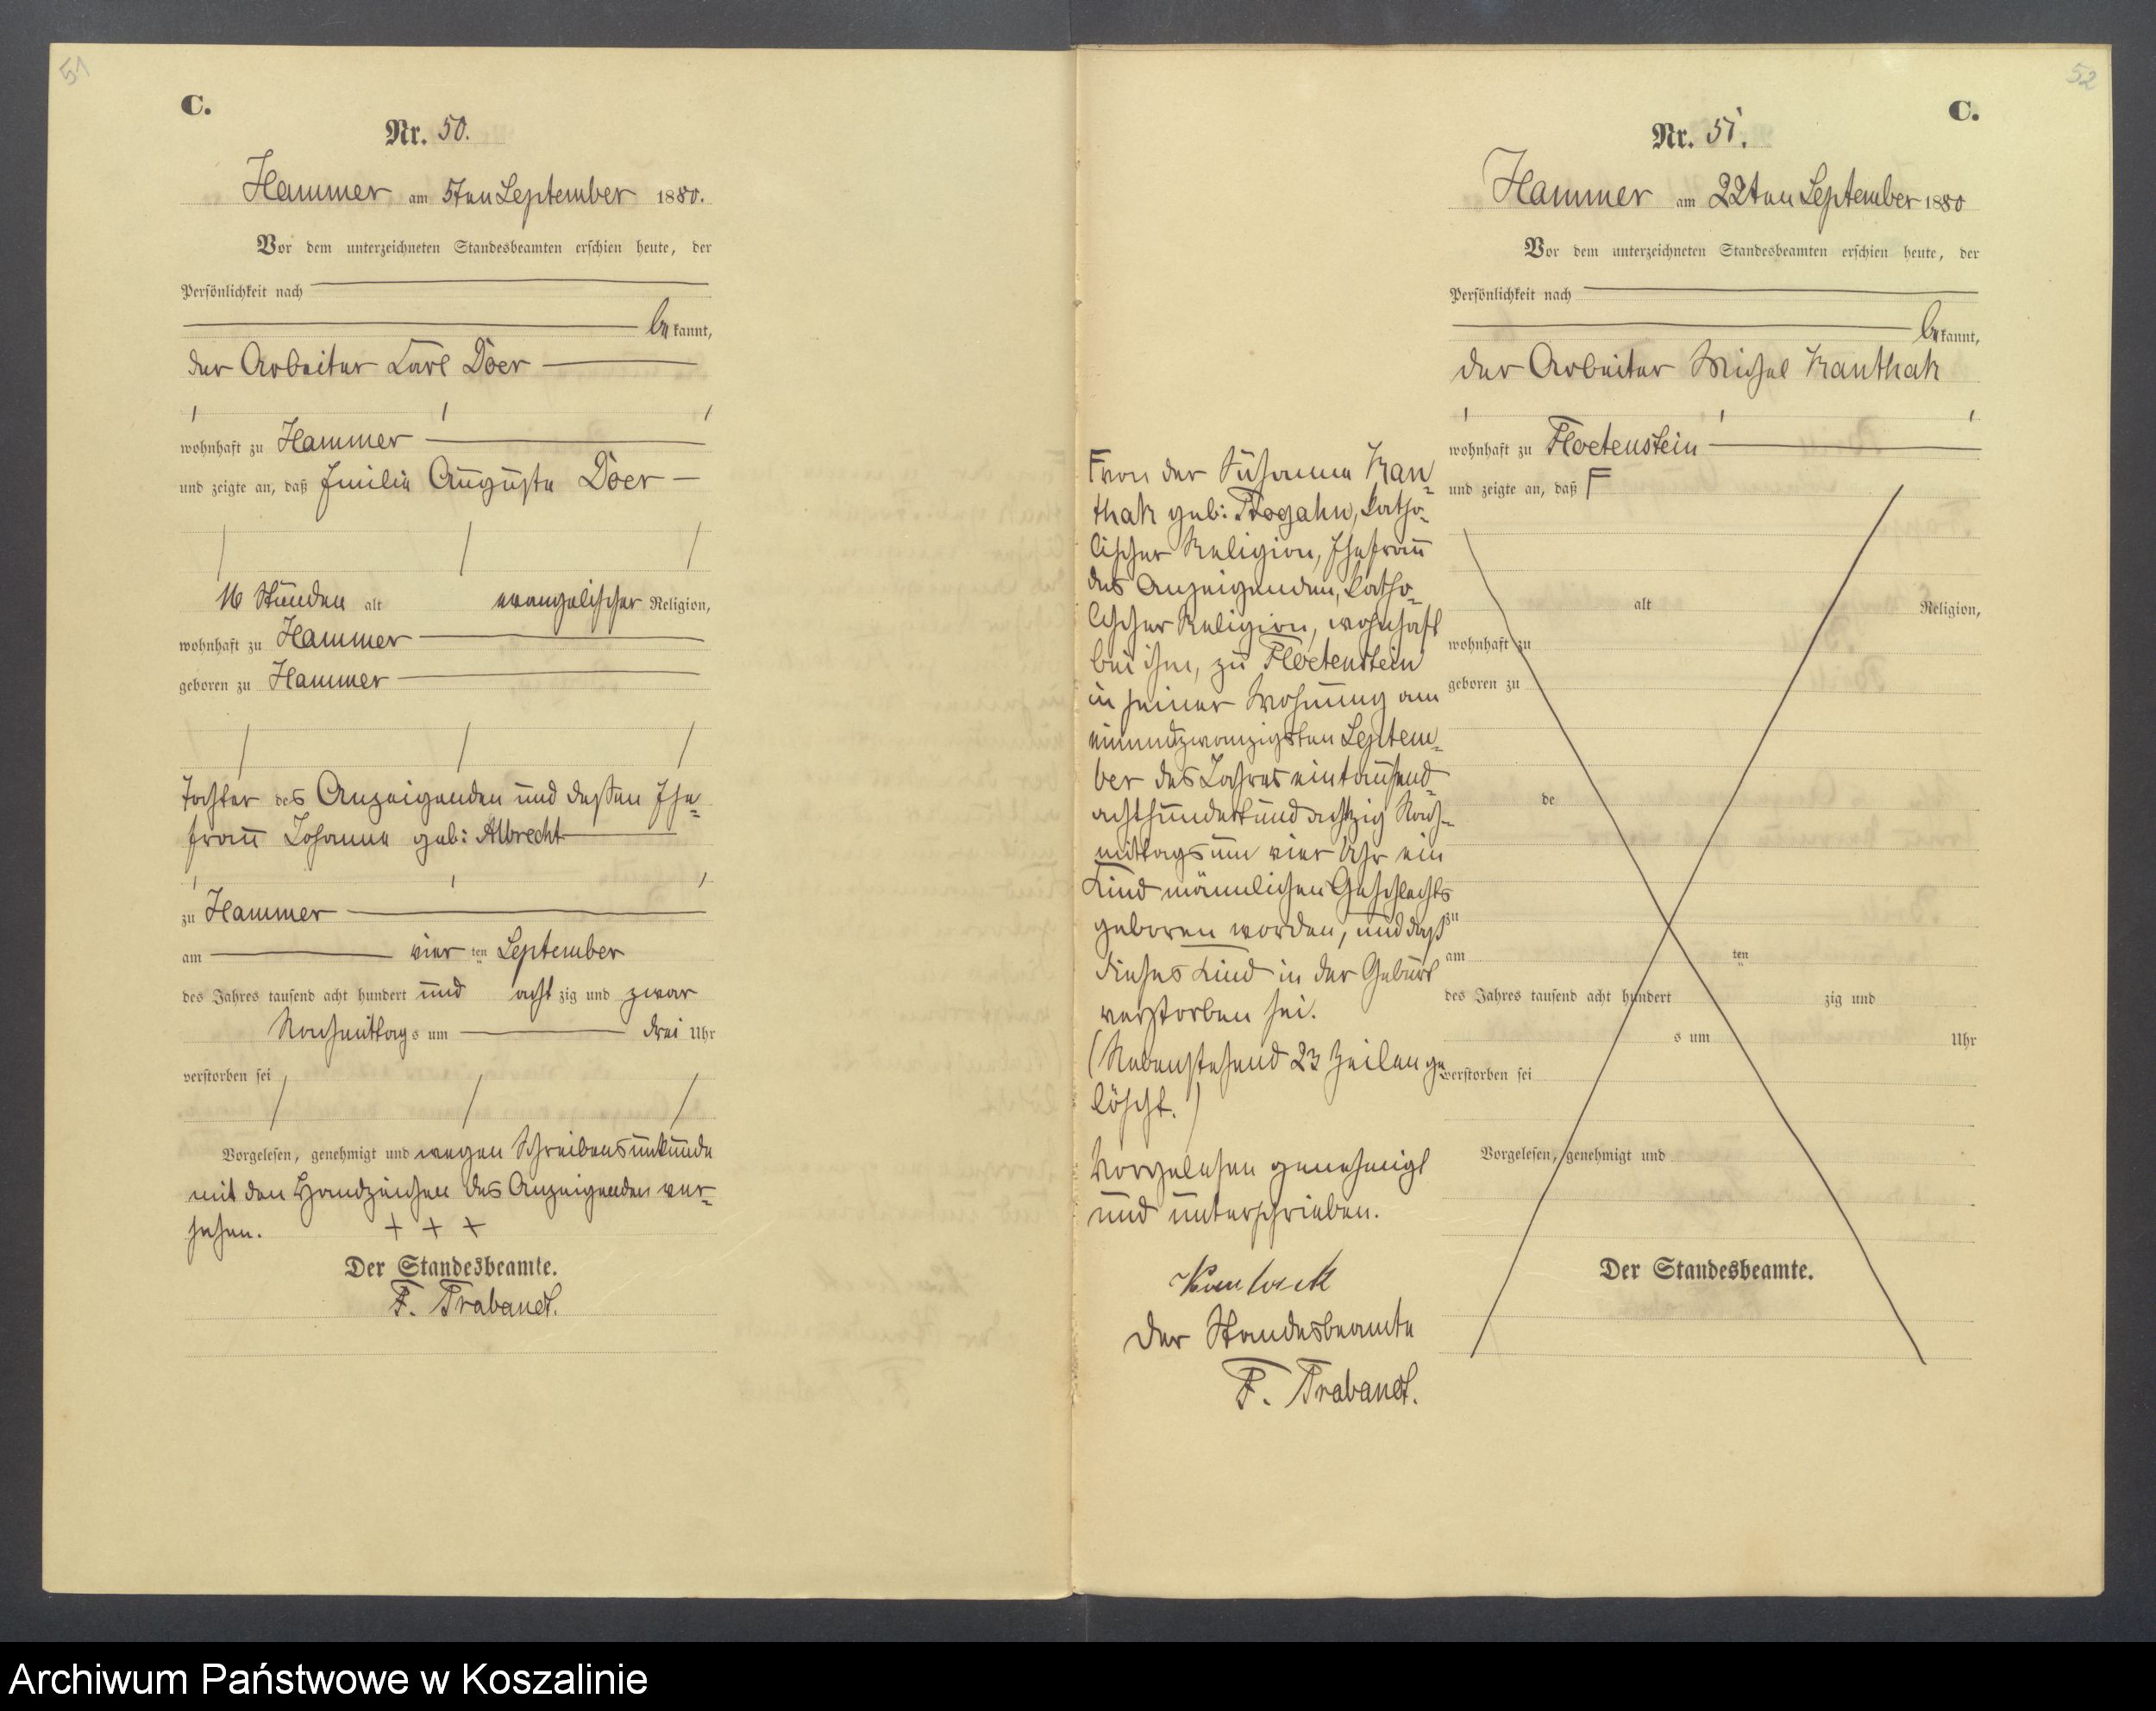 51
C.
Nr. 50.
Hammer am 5ten September 1880.
Vor dem unterzeichneten Standesbeamten erschien heute, der
Persönlichkeit nach
be kannt,
der Arbeiter Carl Döer
wohnhaft zu Hammer
und zeigte an, daß Emilie Auguste Döer
16 Stunden alt evangelischer Religion,
wohnhaft zu Hammer
geboren zu Hammer
Tochter des Anzeigenden und dessen Ehe-
frau Johanne geb: Albrecht
zu Hammer
am vier ten September
des Jahres tausend acht hundert und acht zig und zwar
Nachmittag s um drei Uhr
verstorben sei
Vorgelesen, genehmigt und wegen Schreibensunkunde
mit den Handzeichen des Anzeigenden ver-
sehen. + + +
Der Standesbeamte.
F. Trabandt.
52
C.
Nr. 51.
Hammer am 22ten September 1880
Vor dem unterzeichneten Standesbeamten erschien heute, der
Persönlichkeit nach
be kannt,
der Arbeiter Michel Kanthak
wohnhaft zu Floetenstein
und zeigte an, daß F
alt Religion,
wohnhaft zu
geboren zu
de
zu
am ten
des Jahres tausend acht hundert zig und
s um Uhr
verstorben sei
Vorgelesen, genehmigt und
Der Standesbeamte.
F von der Susanne Kan-
thak geb: Rogahn, katho-
lischer Religion, Ehefrau
des Anzeigenden, katho-
lischer Religion, wohnhaft
bei ihm, zu Floetenstein
in seiner Wohnung am
einundzwanzigsten Septem-
ber des Jahres eintausend-
achthundertundachtzig Nach-
mittags um vier Uhr ein
Kind männlichen Geschlechts
geboren worden, und daß
dieses Kind in der Geburt
verstorben sei.
(Nebenstehend 23 Zeilen ge
löscht.)
Vorgelesen genehmigt
und unterschrieben.
Der Standesbeamte
F. Trabandt.
Archiwum Państwowe w Koszalinie